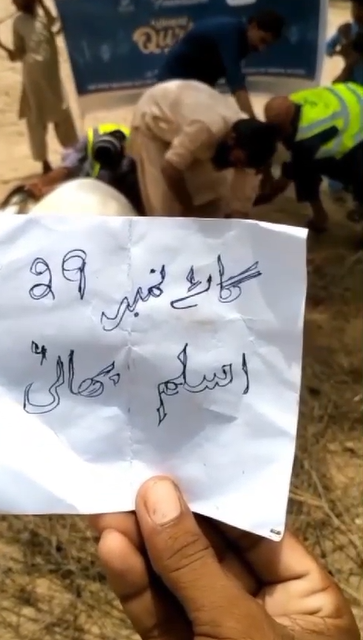 Qur
گائے نمبر 29
اسلم بھائی